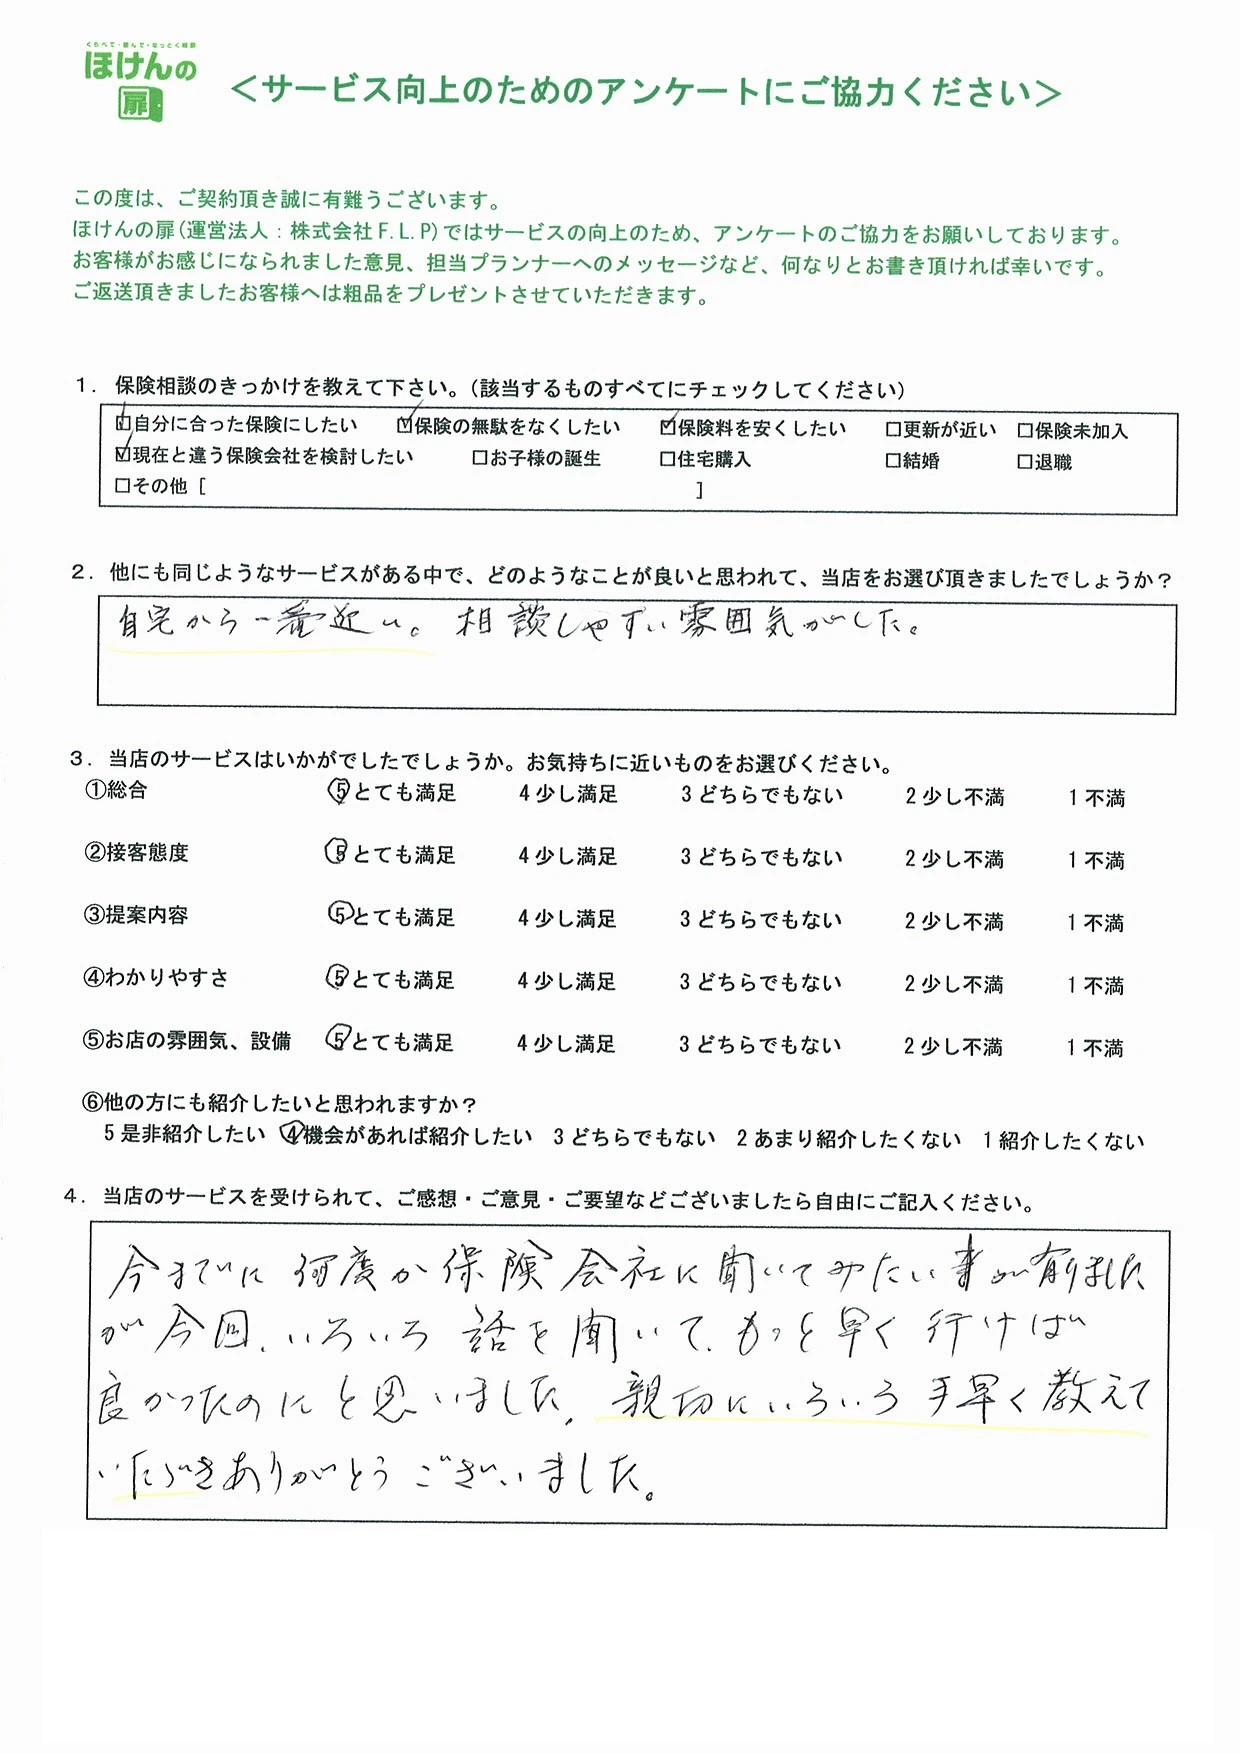 くらべて・選んで・なっとく相談
ほけんの
扉
＜サービス向上のためのアンケートにご協力ください＞
この度は、ご契約頂き誠に有難うございます。
ほけんの扉(運営法人：株式会社F.L.P)ではサービスの向上のため、アンケートのご協力をお願いしております。
お客様がお感じになられました意見、担当プランナーへのメッセージなど、何なりとお書き頂ければ幸いです。
ご返送頂きましたお客様へは粗品をプレゼントさせていただきます。
１．保険相談のきっかけを教えて下さい。（該当するものすべてにチェックしてください）
☑自分に合った保険にしたい ☑保険の無駄をなくしたい ☑保険料を安くしたい □更新が近い □保険未加入
☑現在と違う保険会社を検討したい □お子様の誕生 □住宅購入 □結婚 □退職
□その他［ ］
２．他にも同じようなサービスがある中で、どのようなことが良いと思われて、当店をお選び頂きましたでしょうか？
自宅から一番近い。相談しやすい雰囲気がした。
３．当店のサービスはいかがでしたでしょうか。お気持ちに近いものをお選びください。
①総合 ⑤とても満足 4少し満足 3どちらでもない 2少し不満 1不満
②接客態度 ⑤とても満足 4少し満足 3どちらでもない 2少し不満 1不満
③提案内容 ⑤とても満足 4少し満足 3どちらでもない 2少し不満 1不満
④わかりやすさ ⑤とても満足 4少し満足 3どちらでもない 2少し不満 1不満
⑤お店の雰囲気、設備 ⑤とても満足 4少し満足 3どちらでもない 2少し不満 1不満
⑥他の方にも紹介したいと思われますか？
5是非紹介したい ④機会があれば紹介したい 3どちらでもない 2あまり紹介したくない 1紹介したくない
４．当店のサービスを受けられて、ご感想・ご意見・ご要望などございましたら自由にご記入ください。
今までに何度か保険会社に聞いてみたい事が有りました
が今回、いろいろ話を聞いて、もっと早く行けば
良かったのにと思いました。親切にいろいろ手早く教えて
いただきありがとうございました。